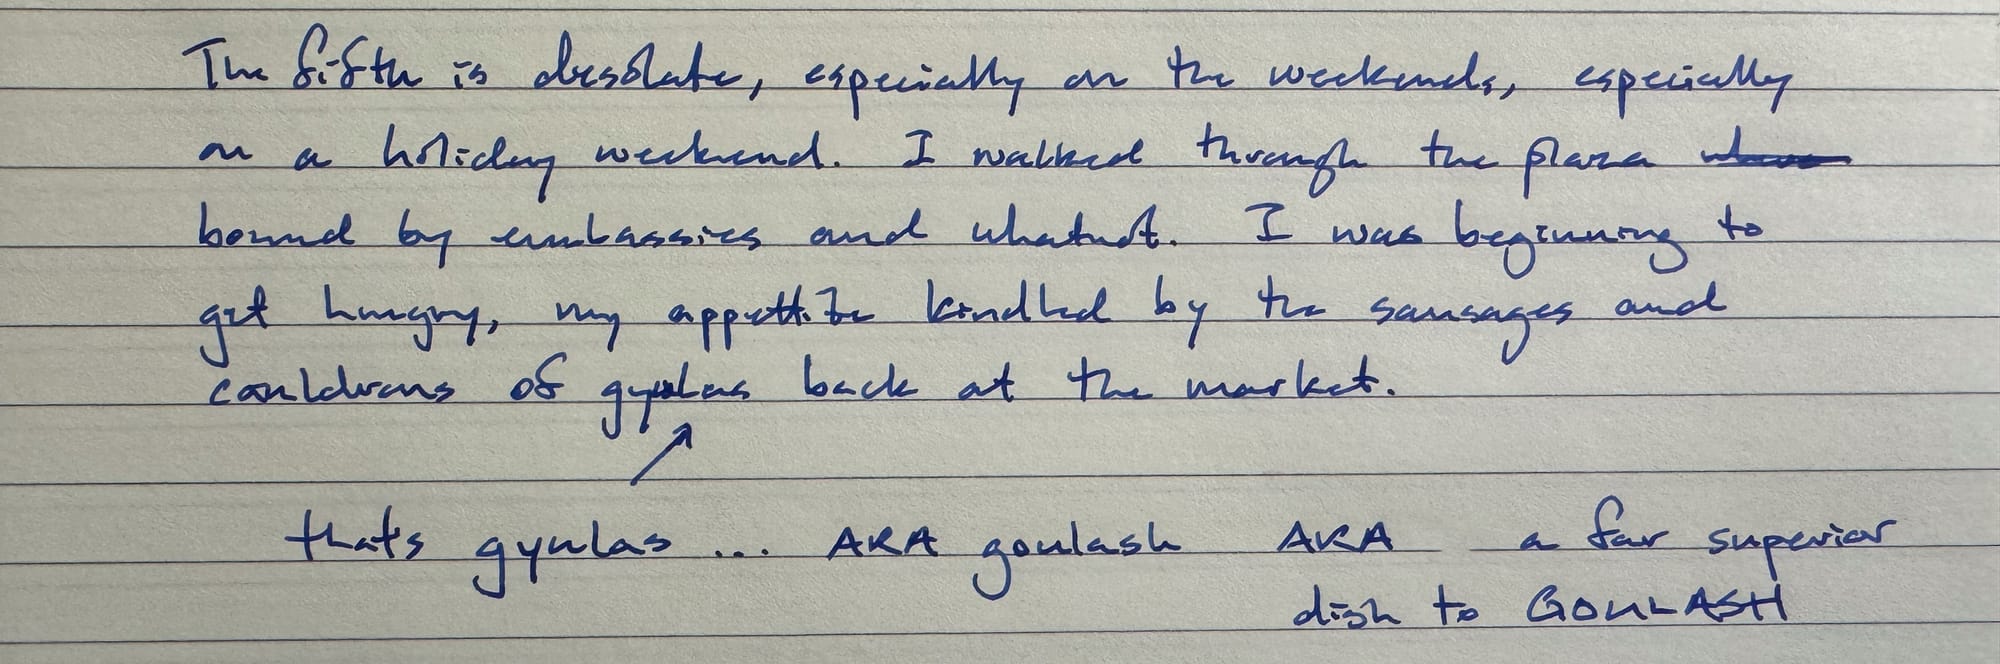 The fifth is desolate, especially on the weekends, especially
on a holiday weekend. I walked through the plaza
bound by embassies and whatnot. I was beginning to
get hungry, my appettite kindled by the sausages and
cauldrons of gyulas back at the market.
that's gyulas ... AKA goulash AKA a far superior
dish to GOULASH